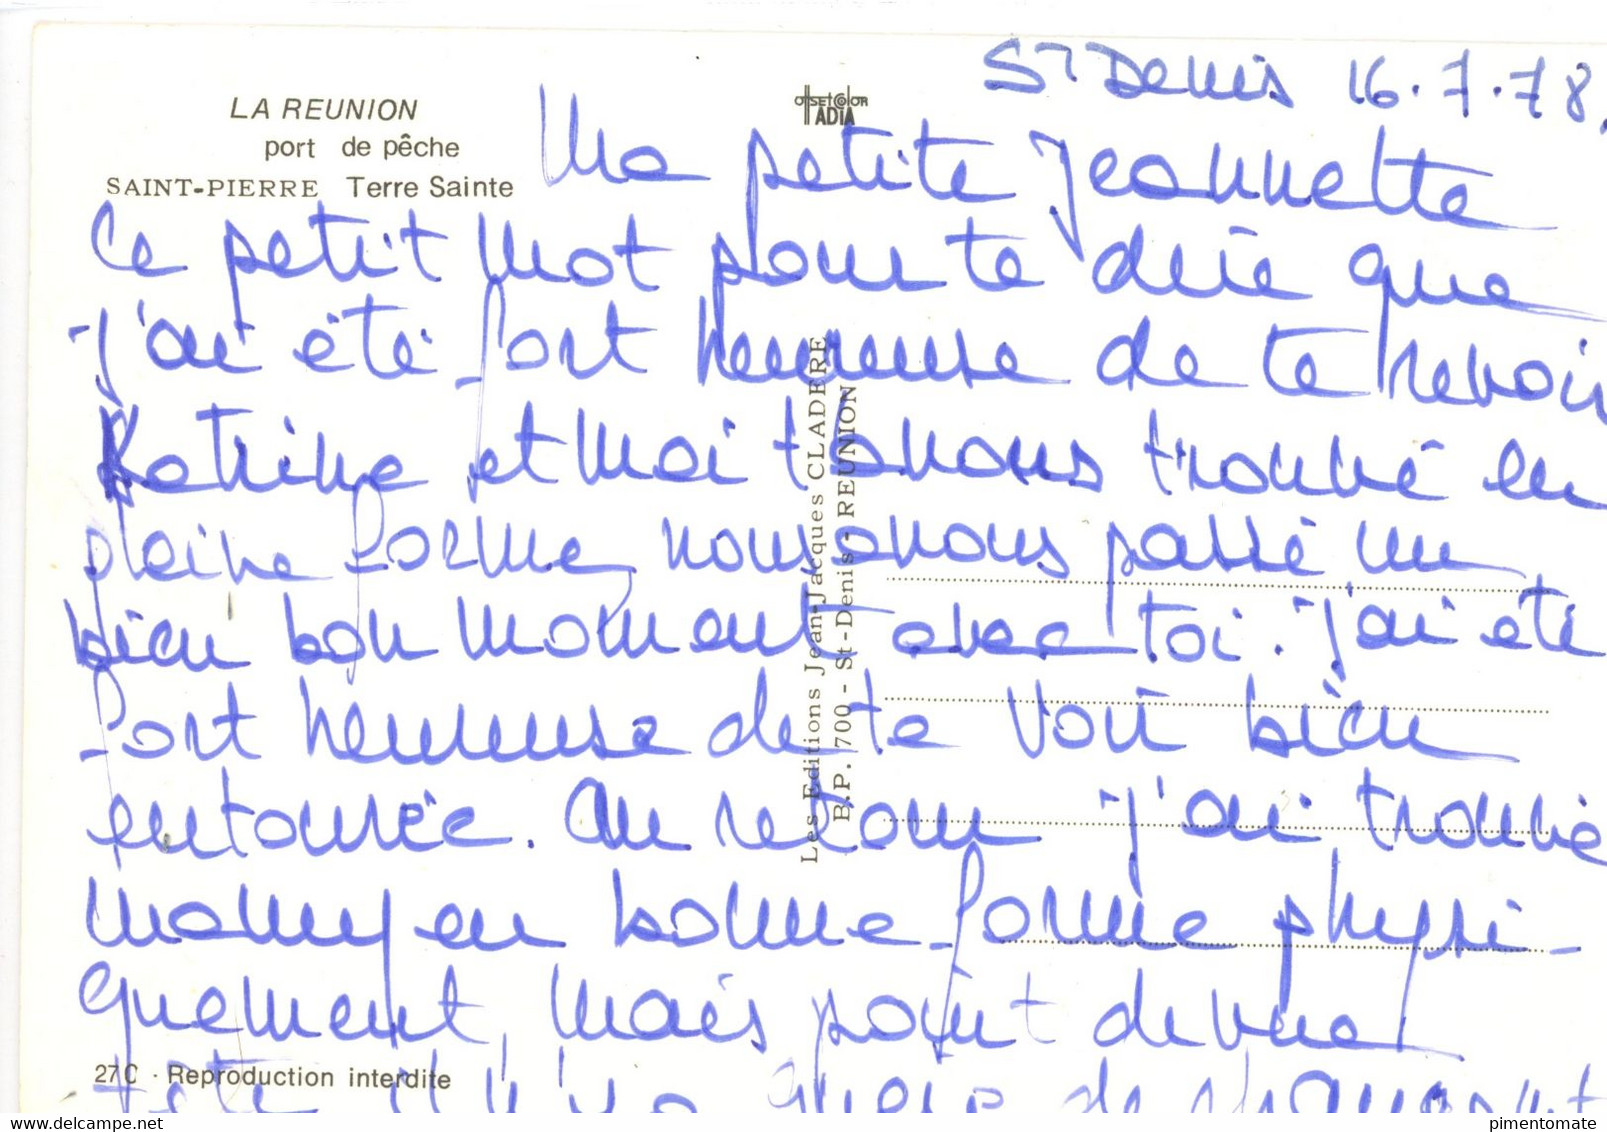 St Denis 16.7.78.
LA REUNION
port de pêche
SAINT-PIERRE Terre Sainte
OffSETCOlOR
ADIA
Ma petite Jeannette
Ce petit mot pour te dire que
j'ai été fort heureuse de te revoir
Katrine et moi t'avons trouvé en
pleine forme, nous avons passé un
bien bon moment avec toi. J'ai été
fort heureuse de te voir bien
entourée. Au retour j'ai trouvé
mamy en bonne forme physi-
quement, mais point de vue
tête il n'y a guère de changement
Les Editions Jean-Jacques CLADERE
B.P. 700 - St-Denis - REUNION
27C - Reproduction interdite
delcampe.net
pimentomate